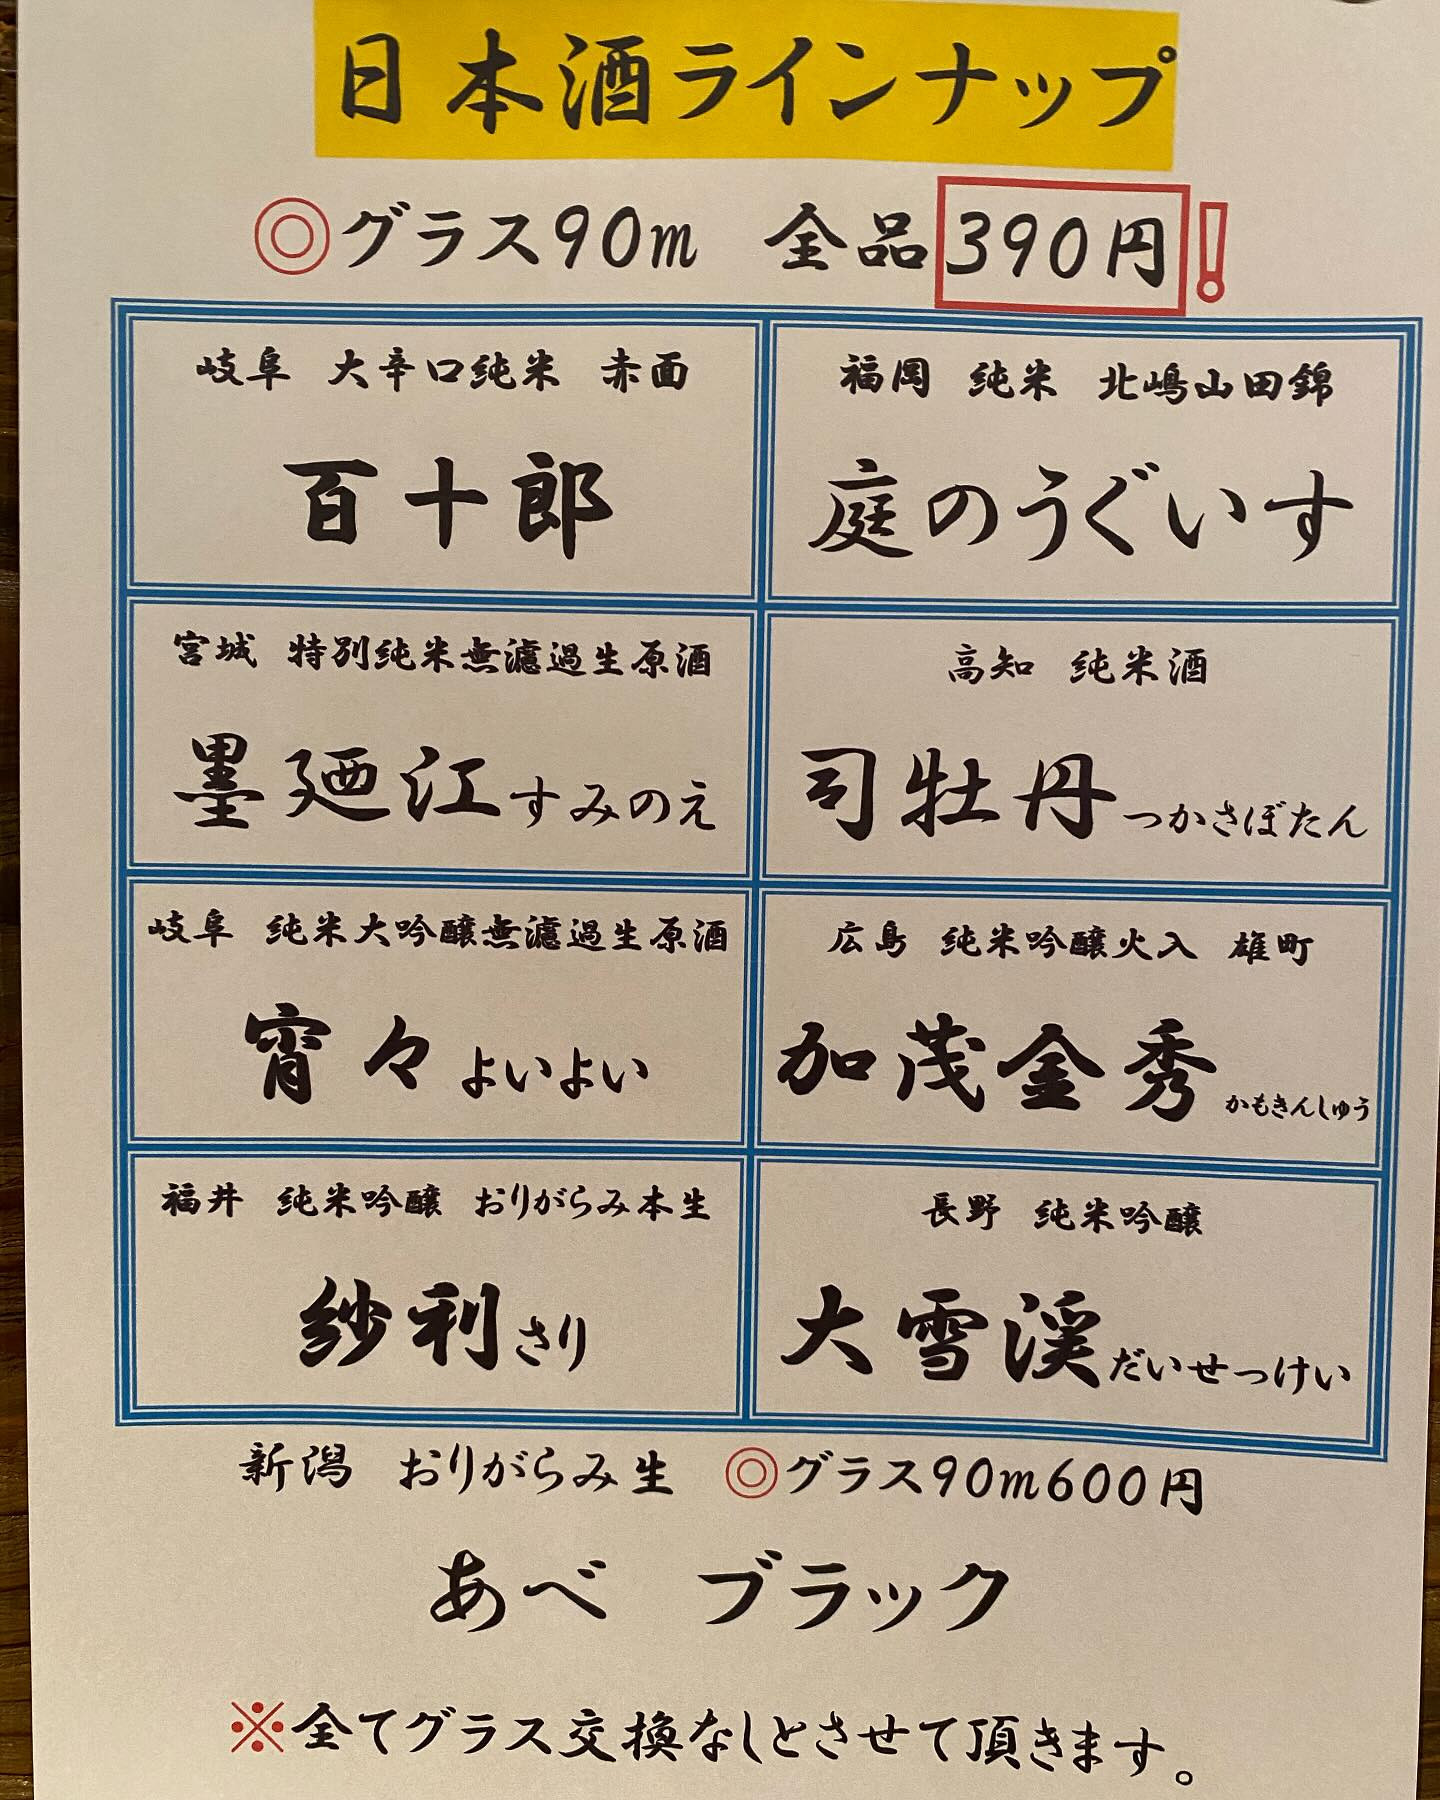 日本酒ラインナップ
◎グラス90m 全品390円!
岐阜 大辛口純米 赤面
百十郎
福岡 純米 北嶋山田錦
庭のうぐいす
宮城 特別純米無濾過生原酒
墨廼江すみのえ
高知 純米酒
司牡丹つかさぼたん
岐阜 純米大吟醸無濾過生原酒
宵々よいよい
広島 純米吟醸火入 雄町
加茂金秀かもきんしゅう
福井 純米吟醸 おりがらみ本生
紗利さり
長野 純米吟醸
大雪渓だいせっけい
新潟 おりがらみ生 ◎グラス90m600円
あべ ブラック
※全てグラス交換なしとさせて頂きます。